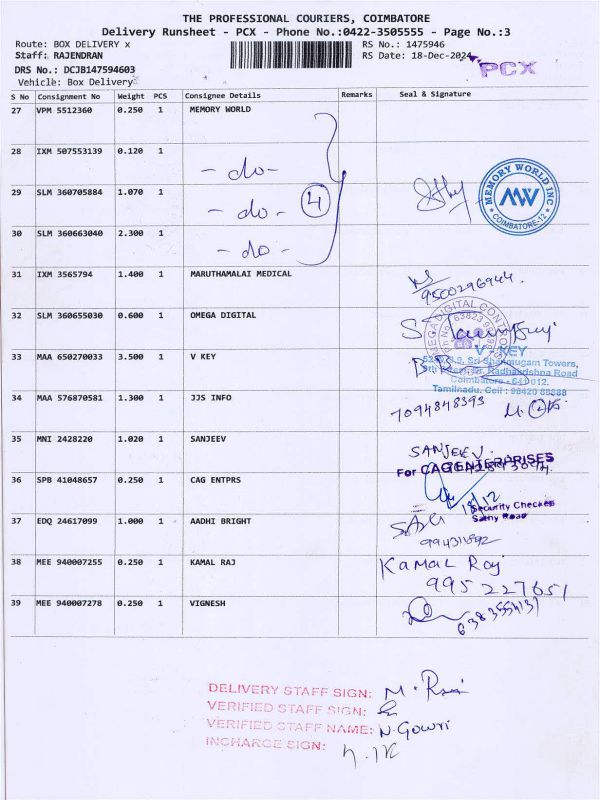 THE PROFESSIONAL COURIERS, COIMBATORE
Delivery Runsheet - PCX - Phone No.:0422-3505555 - Page No.:3
Route: BOX DELIVERY x
RS No.: 1475946
Staff: RAJENDRAN
RS Date: 18-Dec-2024
PCX
DRS No.: DCJB147594603
Vehicle: Box Delivery
S No Consignment No Weight PCS Consignee Details Remarks Seal & Signature
27 VPM 5512360 0.250 1 MEMORY WORLD
28 IXM 507553139 0.120 1 - do -
29 SLM 360705884 1.070 1 - do - 4
MEMORY WORLD INC
MW
COIMBATORE-12
30 SLM 360663040 2.300 1 - do -
31 IXM 3565794 1.400 1 MARUTHAMALAI MEDICAL
9500296944
32 SLM 360655030 0.600 1 OMEGA DIGITAL
33 MAA 650270033 3.500 1 V KEY
V - KEY
Shanmugam Towers,
Radhakrishna Road
Coimbatore - 641 012.
Tamilnadu. Cell : 98420 88388
34 MAA 576870581 1.300 1 JJS INFO
7094848393
35 MNI 2428220 1.020 1 SANJEEV
SANJEEV
For CAG ENTERPRISES
36 SPB 41048657 0.250 1 CAG ENTPRS
18/12
Security Checked
Sathy Road
37 EDQ 24617099 1.000 1 AADHI BRIGHT
38 MEE 940007255 0.250 1 KAMAL RAJ
Kamal Raj
995227651
39 MEE 940007278 0.250 1 VIGNESH
DELIVERY STAFF SIGN:
VERIFIED STAFF SIGN:
VERIFIED STAFF NAME: N. Gowri
INCHARGE SIGN: